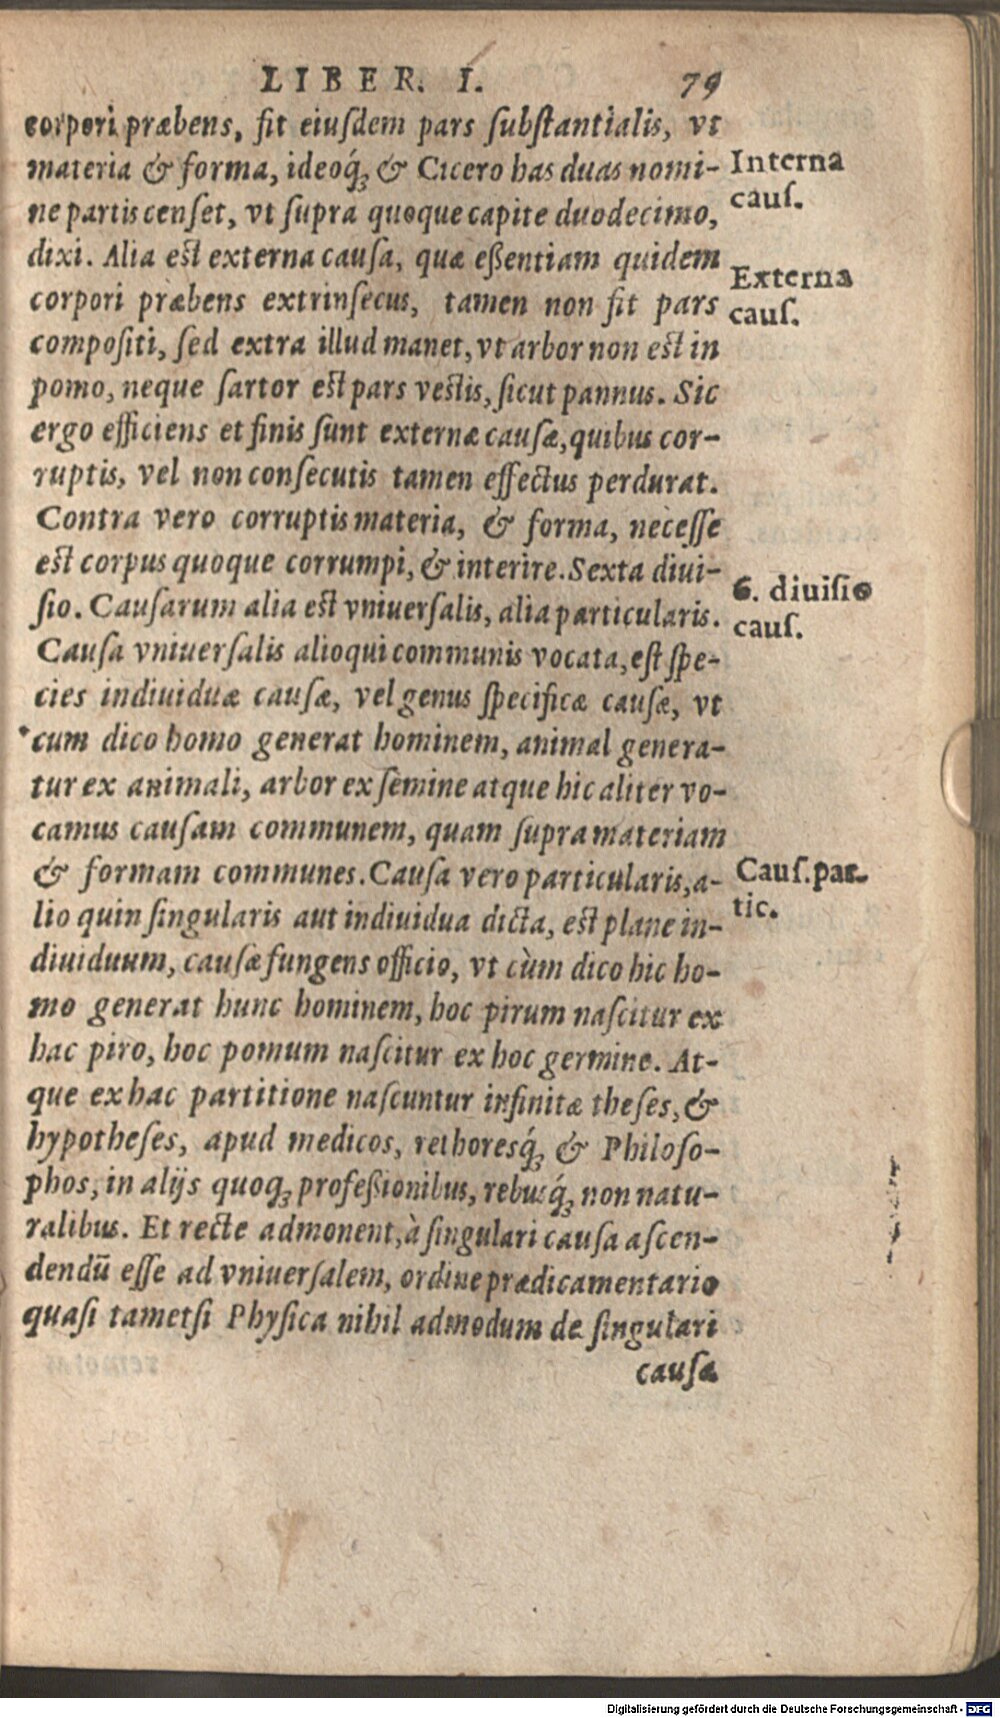 LIBER. I. 79
corpori præbens, fit eiuſdem pars ſubſtantialis, vt
materia & forma, ideoq́ꝫ & Cicero has duas nomi-
ne partis cenſet, vt ſupra quoque capite duodecimo,
dixi. Alia eſt externa cauſa, quæ eßentiam quidem
corpori præbens extrinſecus, tamen non fit pars
compoſiti, ſed extra illud manet, vt arbor non eſt in
pomo, neque ſartor eſt pars veſtis, ſicut pannus. Sic
ergo efficiens et finis ſunt externæ cauſæ, quibus cor-
ruptis, vel non conſecutis tamen effectus perdurat.
Contra vero corruptis materia, & forma, neceſſe
eſt corpus quoque corrumpi, & interire. Sexta diui-
ſio. Cauſarum alia eſt vniuerſalis, alia particularis.
Cauſa vniuerſalis alioqui communis vocata, eſt ſpe-
cies indiuiduæ cauſæ, vel genus ſpecificæ cauſæ, vt
cum dico homo generat hominem, animal genera-
tur ex animali, arbor ex ſemine atque hic aliter vo-
camus cauſam communem, quam ſupra materiam
& formam communes. Cauſa vero particularis, a-
lio quin ſingularis aut indiuidua dicta, eſt plane in-
diuiduum, cauſæ fungens officio, vt cùm dico hic ho-
mo generat hunc hominem, hoc pirum naſcitur ex
hac piro, hoc pomum naſcitur ex hoc germine. At-
que ex hac partitione naſcuntur infinitæ theſes, &
hypotheſes, apud medicos, rethoresq́ꝫ & Philoſo-
phos, in alijs quoqꝫ profeßionibus, rebusq́ꝫ non natu-
ralibus. Et recte admonent, à ſingulari cauſa aſcen-
dendū eſſe ad vniuerſalem, ordine prædicamentario
quaſi tametſi Phyſica nihil admodum de ſingulari
cauſa
Interna
cauſ.
Externa
cauſ.
6. diuiſio
cauſ.
Cauſ. par-
tic.
Digitalisierung gefördert durch die Deutsche Forschungsgemeinschaft - DFG